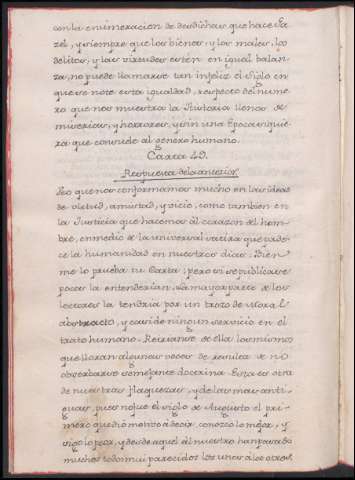 con la enumeracion de desdichas que hace Ga-
zel, y siempre que los bienes, y los males, los
delitos, y las virtudes esten en igual balan-
za, no puede llamarse tan infeliz el Siglo en
que se note esta igualdad, respecto del nume-
ro que nos muestra la Historia llenos de
miserias, y horrores, y sin una Epoca siquie-
ra que consuele al genero humano.
Carta 49.
Respuesta de la anterior.
Veo que nos conformamos mucho en las ideas
de virtud, amistad, y vicio, como tambien en
la Justicia que hacemos al corazon del hom-
bre, en medio de la universal satira que pade-
ce la humanidad en nuestros dias. Bien
me lo prueba tu Carta; pero si se publicase
pocos la entenderian. La mayor parte de los
lectores la tendria por un trozo de Moral
abstracto, y casi de ningun servicio en el
trato humano. Reirianse de ella los mismos
que lloran algunas veces de resultas de no
observarse semejante doctrina. Esta es otra
de nuestras flaquezas, y de las mas anti-
guas, pues no fue el siglo de Augusto el pri-
mero que dió motivo a decir, conozco lo mejor, y
sigo lo peor, y desde aquel al nuestro han pasado
muchos todos mui parecidos los unos a los otros.